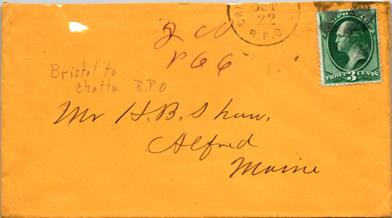 2 M
P66
OCT
22
R.P.O.
THREE 3 CENTS
Bristol to
Chatta R.P.O
Mr H.B. Shaw,
Alfred
Maine